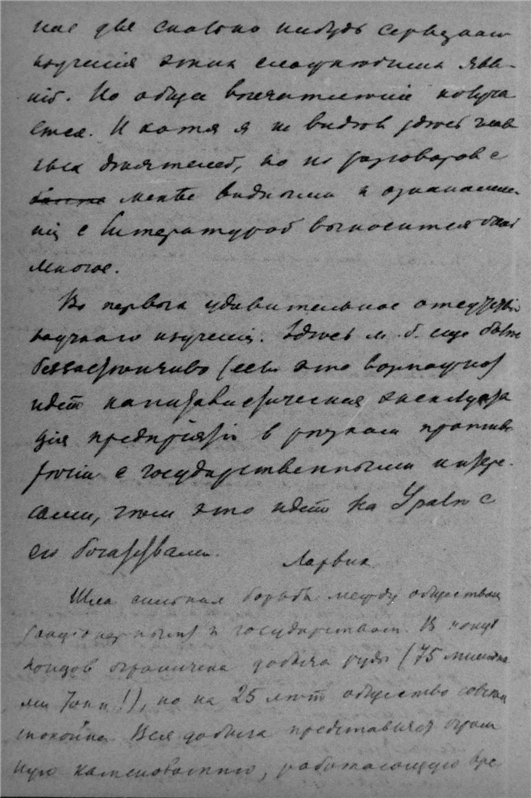 нас две сколько нибудь серьезнаго
изучения этих следующих явле-
ний. Но общее впечатление получа
ется. И хотя я не видел здесь
деятелей, но из разговоров с
менѣе видными и ознакомле-
ния с литературой выносится
многое.
Во первых удивительное отсутствие
научного изучения. Здесь м. б. еще более
беззастенчиво (если это возможно)
идет капиталистическая эксплуата
ция предприятий в руках против
с государственными интере-
сами, чем это идет на Урале с
его богатствами.
Нарвик
Шла сильная борьба между обществом
и государством. В конце
концов ограничена добыча руды (75 миллиона
ми тонн!), но на 25 лет общество совсем
спокойно. Вся добыча представляет огром
ную каменоломню, работающую